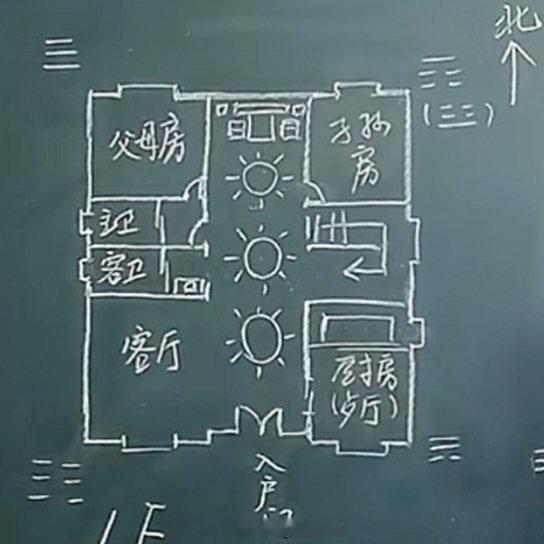 北
父母房
子孙
房
主卫
客卫
客厅
厨房
(歺厅)
入
户
门
1F